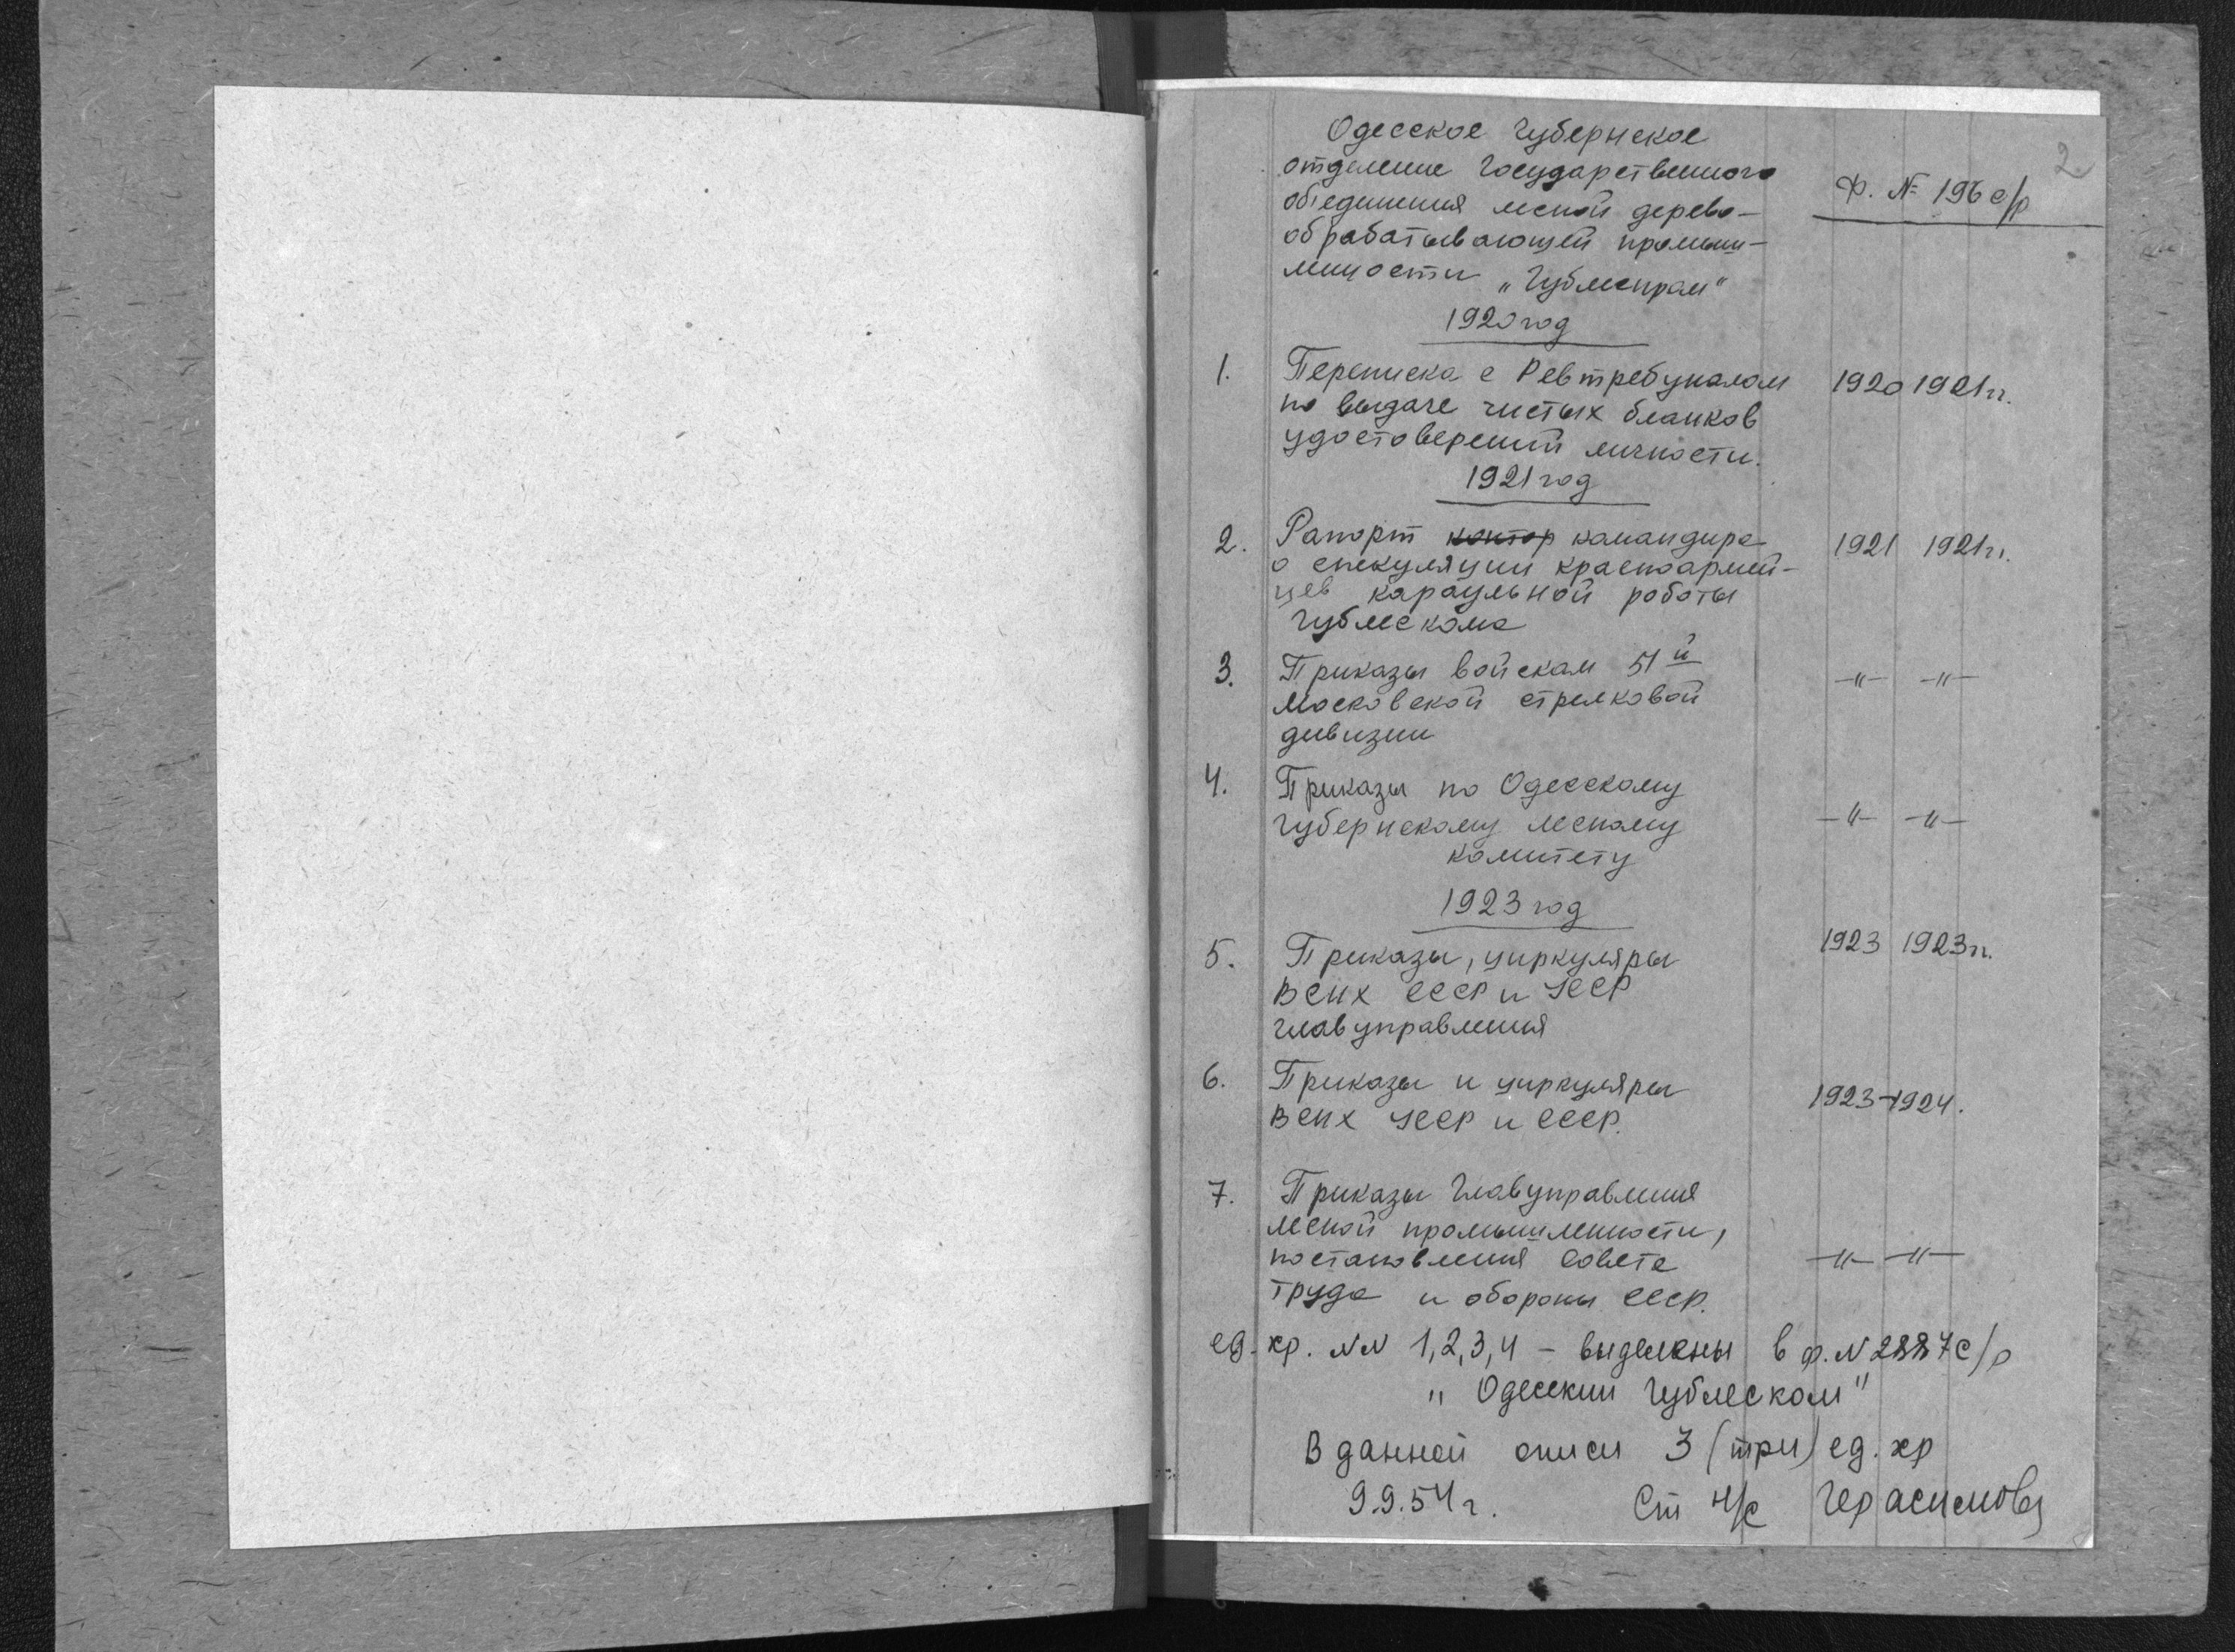 2.
Одесское Губернское
отделение Государственного
объединения лесной дерево-
обрабатывающей промыш-
лености „Гублеспром"
Ф. № 196 с/р
1920 год
1. Переписка с Ревтребуналом 1920 1921 гг.
по выдаче чистых бланков
удостоверений личности.
1921 год
2. Рапорт контор командира 1921 1921 гг.
о спекуляции красноармей-
цев караульной роботы
Гублескома
3. Приказы войскам 51й —"— —"—
Московской стрелковой
дивизии
4. Приказы по Одесскому
Губернскому лесному —"— —"—
комитету
1923 год
5. Приказы, циркуляры 1923 1923 гг.
ВСНХ СССР и УССР
главуправления
6. Приказы и циркуляры 1923-1924.
ВСНХ УССР и СССР.
7. Приказы Главуправления
лесной промышленности,
постановления Совета —"— —"—
труда и обороны СССР.
ед. хр. NN 1,2,3,4 - выделены в ф. N 2887 с/р
" Одесский Гублеском"
В данной описи 3 (три) ед. хр
9.9.54 г. Ст н/с Герасимова